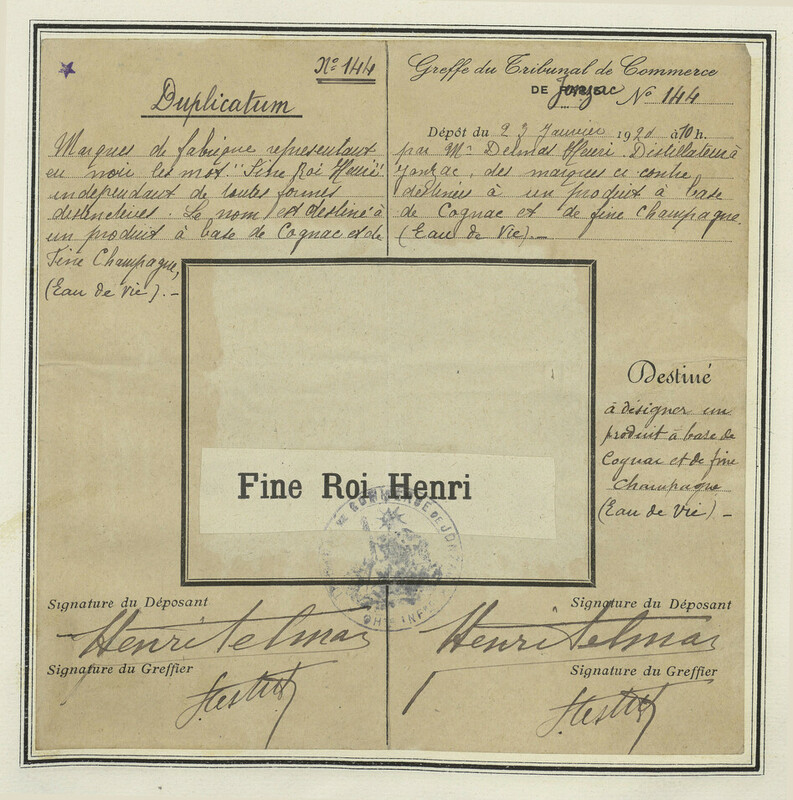 Nº 144
Duplicatum
Marques de fabrique représentant
en noir les mot. "Fine Roi Henri"
independant de toutes formes
distinctives. Le nom est destiné à
un produit à base de Cognac et de
Fine Champagne,
(Eau de Vie). -
Greffe du Tribunal de Commerce
DE Jonzac Nº 144
Dépôt du 23 Janvier 1920 à 10 h.
par Mr Delmas Henri. Distillateur à
Jonzac, des marques ci contre
destinées à un produit à base
de Cognac et de fine Champagne.
(Eau de Vie). -
Fine Roi Henri
Destiné
à désigner un
produit à base de
Cognac et de fine
Champagne
(Eau de Vie) -
COMMERCE DE JONZAC
Signature du Déposant
Henri Delmas
Signature du Greffier
Signature du Déposant
Henri Delmas
Signature du Greffier